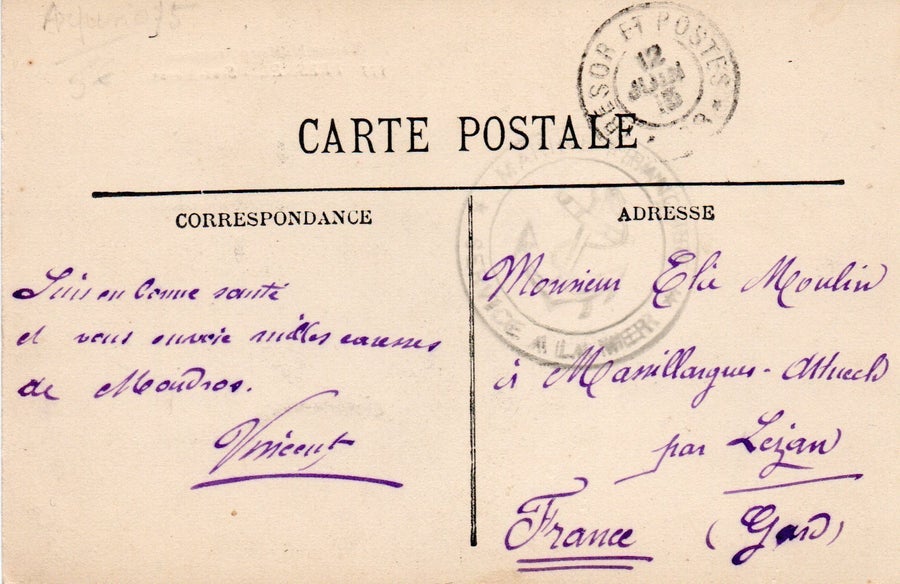 CARTE POSTALE
TRESOR ET POSTES
12
JUIN
CORRESPONDANCE
ADRESSE
SERVICE A LA MER
Suis en bonne santé
et vous envoie milles caresses
de Moudros.
Vincent
Monsieur Elie Moulin
à Massillargues-Attuech
par Lézan
France (Gard)